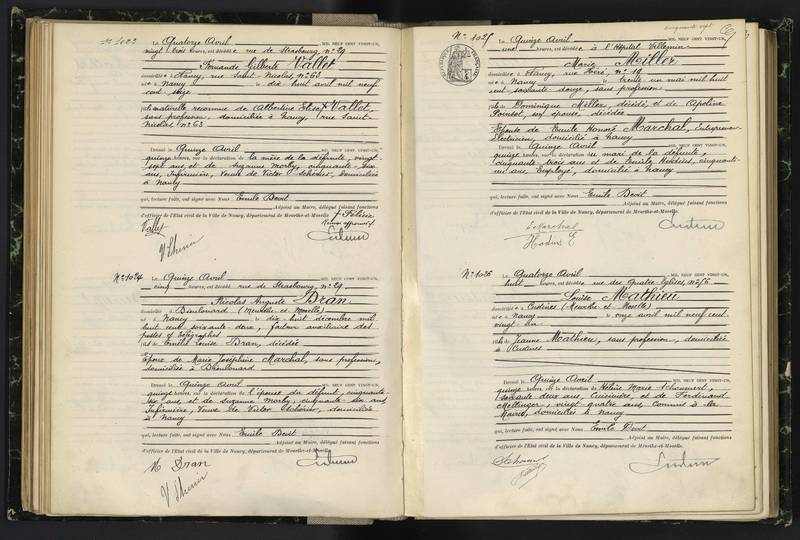 Nº 1023 Le Quatorze Avril MIL NEUF CENT VINGT-UN,
vingt trois heures, est décédée rue de Strasbourg, nº 29
Fernande Gilberte Vallet
domiciliée à Nancy, rue Saint-Nicolas, nº 63
née à Nancy le dix huit avril mil neuf
cent seize
fille naturelle reconnue de Albertine Vallet,
sans profession, domiciliée à Nancy, rue Saint-
Nicolas nº 63
Dressé le Quinze Avril MIL NEUF CENT VINGT-UN,
quinze heures, sur la déclaration de la mère de la défunte, vingt-
sept ans et de Suzanne Morly, cinquante-six
ans, Infirmière, Veuve de Victor domiciliée
à Nancy
qui, lecture faite, ont signé avec Nous Emile Bevit
Adjoint au Maire, délégué faisant fonctions
d'officier de l'Etat civil de la Ville de Nancy, département de Meurthe-et-Moselle.
Vallet
Nº 1024 Le Quinze Avril MIL NEUF CENT VINGT-UN,
cinq heures, est décédé rue de Strasbourg, nº 29
Nicolas Auguste Dran
domicilié à (Meurthe et Moselle)
né à Nancy le dix huit décembre mil
huit cent soixante deux, facteur auxiliaire des
postes et télégraphes
fils de Louise Dran, décédée
Epoux de Marie Joséphine Marchal, sans profession,
domiciliée à
Dressé le Quinze Avril MIL NEUF CENT VINGT-UN,
quinze heures, sur la déclaration de l'épouse du défunt, cinquante-
six ans et de Suzanne Morly, cinquante six ans
Infirmière, Veuve de Victor domiciliée
à Nancy
qui, lecture faite, ont signé avec Nous Emile Bevit
Adjoint au Maire, délégué faisant fonctions
d'officier de l'Etat civil de la Ville de Nancy, département de Meurthe-et-Moselle.
M Dran
Nº 1025 Le Quinze Avril MIL NEUF CENT VINGT-UN,
une heures, est décédée à l'Hôpital Villemin
Marie Miller
domiciliée à Nancy, rue nº 19
née à Nancy le trente un mai mil huit
cent soixante douze, sans profession
fille de Dominique Miller, décédé, et de Apoline
Poinsot, son épouse, décédée
Epouse de Emile Honoré Marchal, Entrepreneur
Electricien, domicilié à Nancy
Dressé le Quinze Avril MIL NEUF CENT VINGT-UN,
quinze heures, sur la déclaration du mari de la défunte,
cinquante trois ans et de Emile cinquante-
un ans, Employé, domicilié à Nancy
qui, lecture faite, ont signé avec Nous Emile Bevit
Adjoint au Maire, délégué faisant fonctions
d'officier de l'Etat civil de la Ville de Nancy, département de Meurthe-et-Moselle.
Marchal
Nº 1026 Le Quatorze Avril MIL NEUF CENT VINGT-UN,
huit heures, est décédée rue des Quatre Eglises,
Louise Mathieu
domiciliée à Custines (Meurthe et Moselle)
née à Nancy le onze avril mil neuf cent
vingt un
fille de Jeanne Mathieu, sans profession, domiciliée
à Custines
Dressé le Quinze Avril MIL NEUF CENT VINGT-UN,
quinze heures, sur la déclaration de Marie
soixante deux ans, Cuisinière, et de Ferdinand
vingt quatre ans, Commis à la
Mairie, domiciliés à Nancy
qui, lecture faite, ont signé avec Nous Emile Bevit
Adjoint au Maire, délégué faisant fonctions
d'officier de l'Etat civil de la Ville de Nancy, département de Meurthe-et-Moselle.